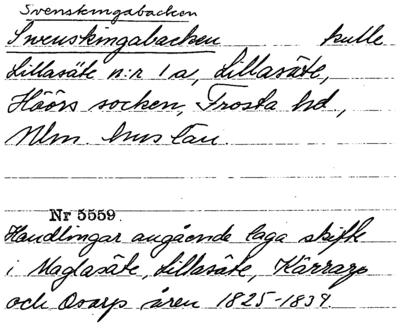 Svenskingabacken
Swenskingabacken kulle
Lillasäte n:r 1a, Lillasäte,
Höörs socken, Frosta hd,
Mlm. hus län.
Nr 5559.
Handlingar angående laga skifte
i Maglasäte, Lillasäte, Kärrap
och Ovarp åren 1825-1839.